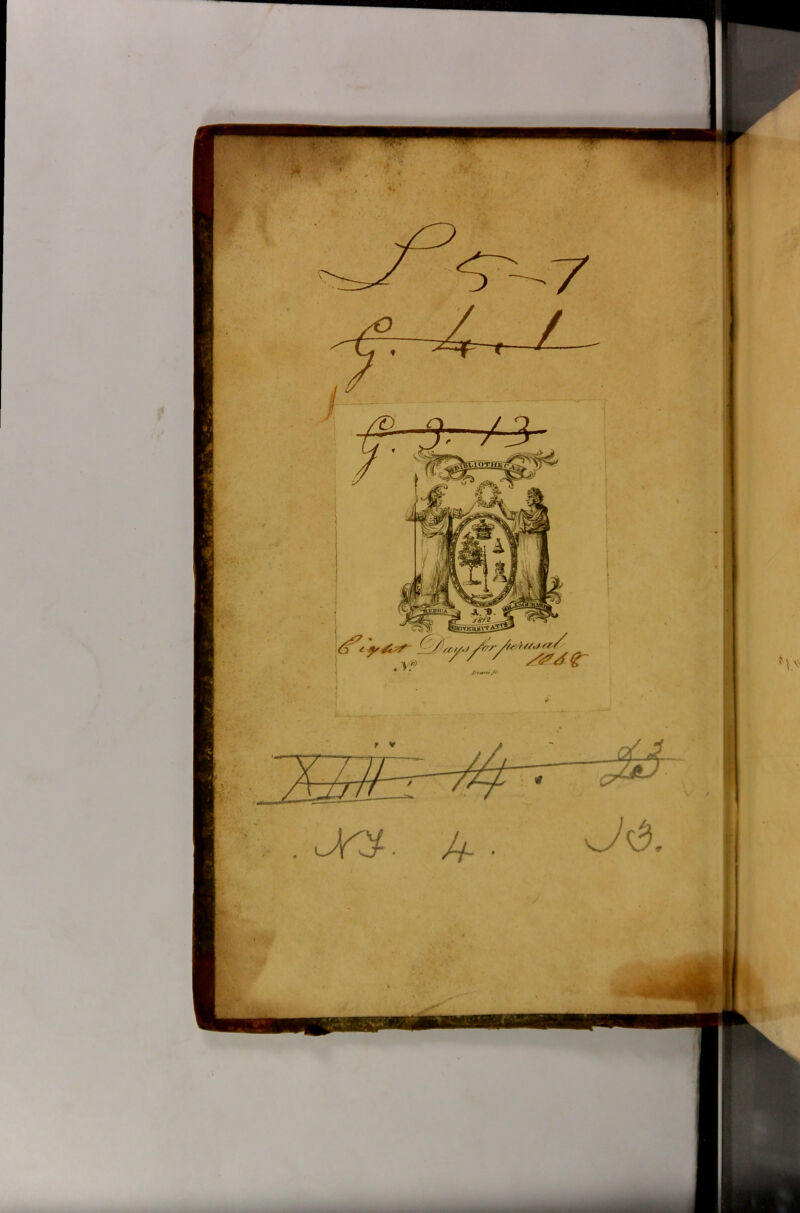 S 5-7
G. 4. 1
G. 3. 13
BIBLIOTHECA
MEDICA
A. D.
1812
UNIVERSITATIS
Eight Days for perusal
No. 1068
XLII. 14. 23
4.